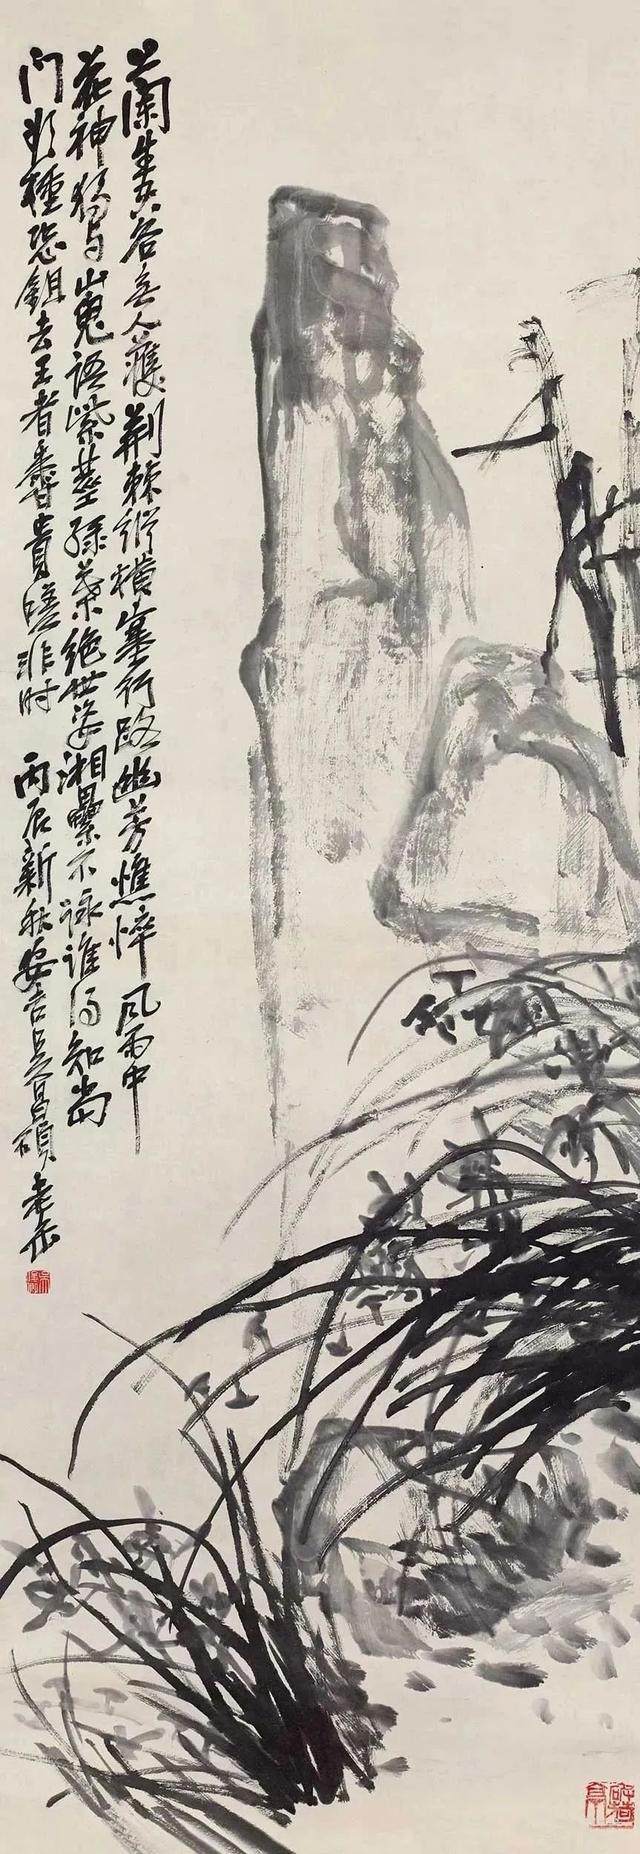 蘭生空谷無人護荆棘縱橫塞行路幽芳憔悴風雨中
花神獨与山鬼語紫莖綠葉絕世姿湘纍不詠誰得知當
門雖種恐鉏去王者香貴嗟非時 丙辰新秋安吉吳昌碩老缶